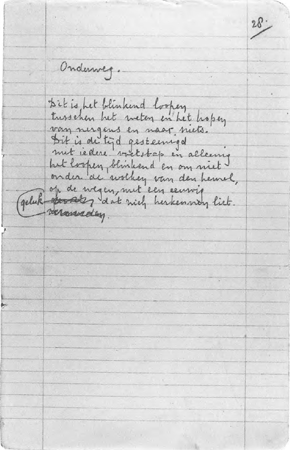 28.
Onderweg.
Dit is het blinkend loopen
tusschen het weten en het hopen
van nergens en naar niets.
Dit is de tijd gesteenigd
met iedere voetstap en alleenig
het loopen, blinkend en om niet
onder de wolken van den hemel,
op de wegen, met een eeuwig
geluk dat zich herkennen liet